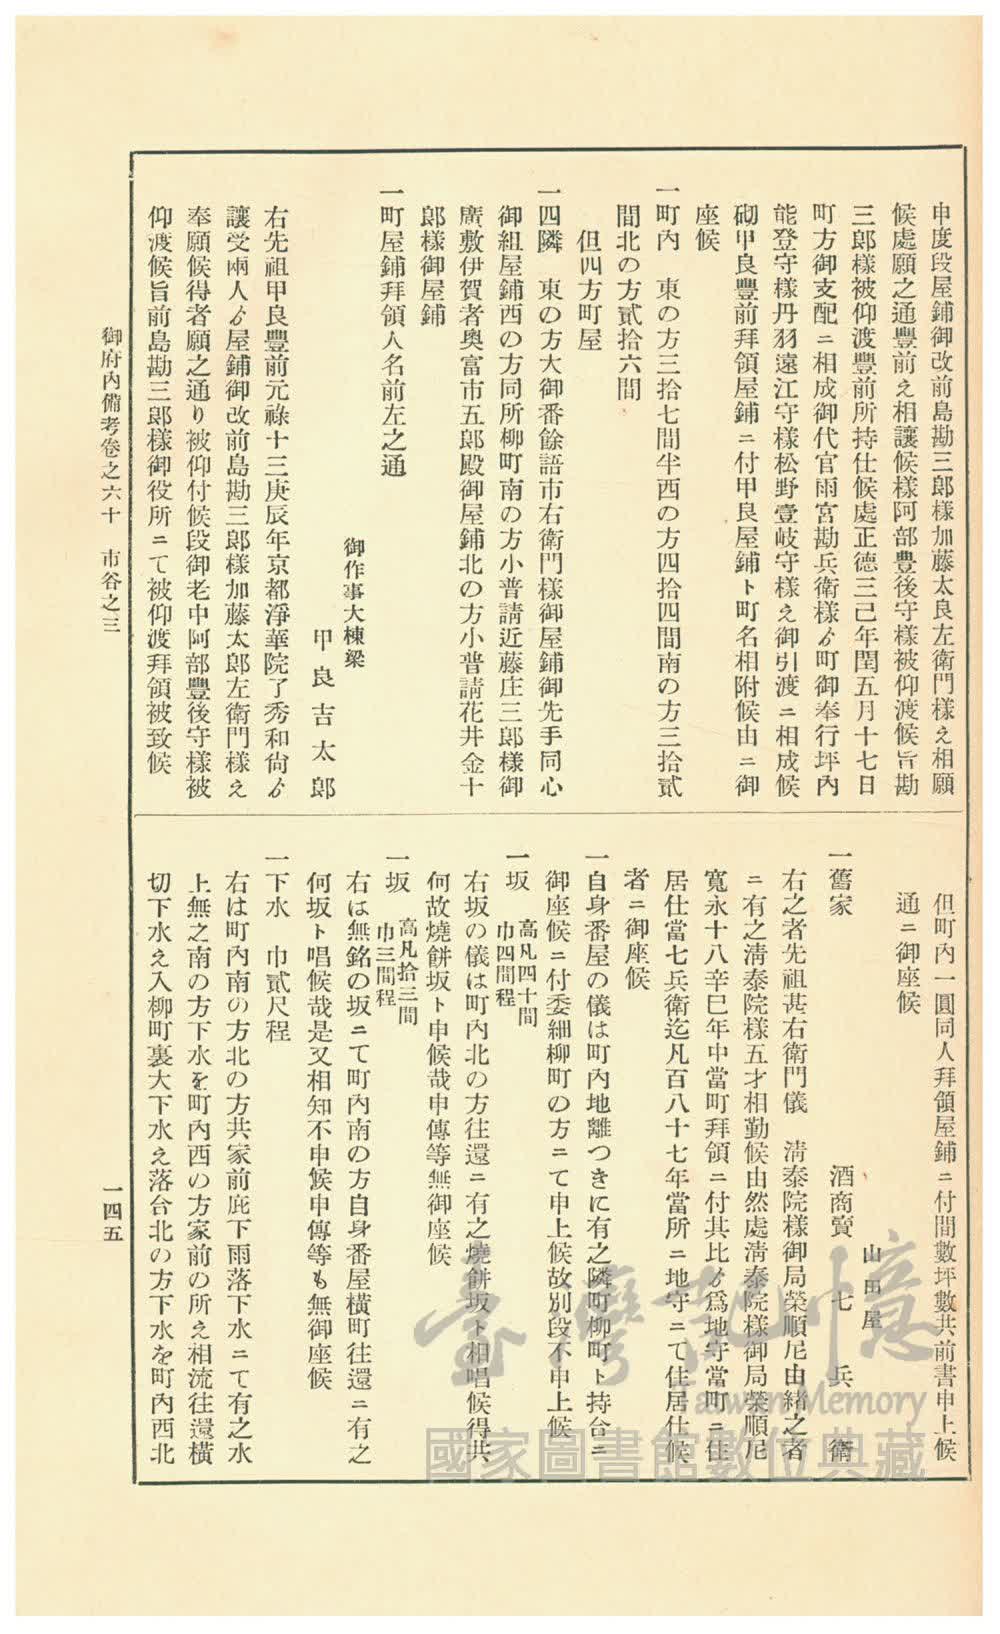 申度段屋鋪御改前島勘三郎樣加藤太良左衛門樣え相願
候處願之通豐前え相讓候樣阿部豊後守樣被仰渡候旨勘
三郎樣被仰渡豐前所持仕候處正德三己年閏五月十七日
町方御支配ニ相成御代官雨宮勘兵衛樣ゟ町御奉行坪內
能登守樣丹羽遠江守樣松野壹岐守樣え御引渡ニ相成候
砌甲良豐前拜領屋鋪ニ付甲良屋鋪ト町名相附候由ニ御
座候
一町內　東の方三拾七間半西の方四拾四間南の方三拾貳
間北の方貳拾六間
但四方町屋
一四隣　東の方大御番餘語市右衛門樣御屋鋪御先手同心
御組屋鋪西の方同所柳町南の方小普請近藤庄三郎樣御
廣敷伊賀者奧富市五郎殿御屋鋪北の方小普請花井金十
郎樣御屋鋪
一町屋鋪拜領人名前左之通
御作事大棟梁
甲良吉太郎
右先祖甲良豐前元祿十三庚辰年京都淨華院了秀和尙ゟ
讓受兩人ゟ屋鋪御改前島勘三郎樣加藤太郎左衛門樣え
奉願候得者願之通り被仰付候段御老中阿部豐後守樣被
仰渡候旨前島勘三郎樣御役所ニて被仰渡拜領被致候
但町內一圓同人拜領屋鋪ニ付間數坪數共前書申上候
通ニ御座候
山田屋
一舊家　酒商賣　七兵衛
右之者先祖甚右衛門儀　淸泰院樣御局榮順尼由緖之者
ニ有之淸泰院樣五才相勤候由然處淸泰院樣御局榮順尼
寬永十八辛巳年中當町拜領ニ付其比ゟ爲地守當町ニ住
居仕當七兵衛迄凡百八十七年當所ニ地守ニて住居仕候
者ニ御座候
一自身番屋の儀は町內地離つきに有之隣町柳町ト持合ニ
御座候ニ付委細柳町の方ニて申上候故別段不申上候
一坂　高凡四十間
巾四間程
右坂の儀は町內北の方往還ニ有之燒餅坂ト相唱候得共
何故燒餅坂ト申候哉申傳等無御座候
一坂　高凡拾三間
巾三間程
右は無銘の坂ニて町內南の方自身番屋橫町往還ニ有之
何坂ト唱候哉是又相知不申候申傳等も無御座候
一下水　巾貳尺程
右は町內南の方北の方共家前庇下雨落下水ニて有之水
上無之南の方下水を町內西の方家前の所え相流往還橫
切下水え入柳町裏大下水え落合北の方下水を町內西北
御府內備考卷之六十　市谷之三
一四五
臺灣記憶
Taiwan Memory
國家圖書館數位典藏